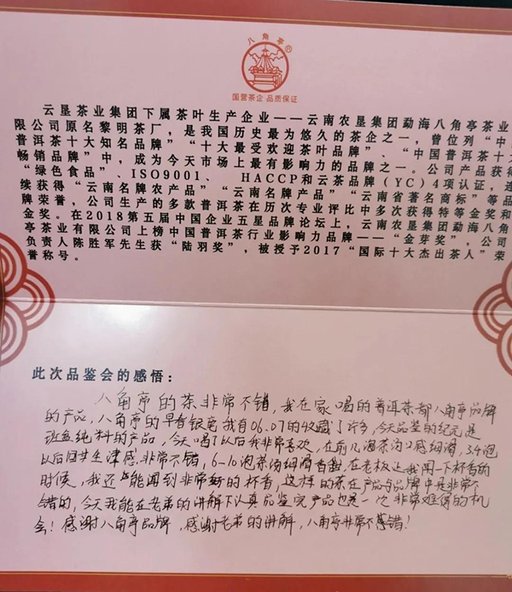 八角亭®
国营茶企 品质保证
云垦茶业集团下属茶叶生产企业——云南农垦集团勐海八角亭茶业
限公司原名黎明茶厂，是我国历史最为悠久的茶企之一，曾位列“中
普洱茶十大知名品牌”“十大最受欢迎茶叶品牌”、“中国普洱茶十大
畅销品牌”中，成为今天市场上最有影响力的品牌之一。公司产品获得
“绿色食品”、ISO9001、 HACCP和云茶品牌（YC）4项认证，连
续获得“云南名牌农产品”“云南名牌产品”“云南省著名商标”等品
牌荣誉，公司生产的多款普洱茶在历次专业评比中多次获得特等金奖和
金奖。在2018第五届中国企业五星品牌论坛上，云南农垦集团勐海八角
亭茶业有限公司上榜中国普洱茶行业影响力品牌——“金芽奖”，公司
负责人陈胜军先生获“陆羽奖”，被授予2017“国际十大杰出茶人”荣
誉称号。
此次品鉴会的感悟：
八角亭的茶非常不错，我在家喝的普洱茶都八角亭品牌
的产品，八角亭的早春银毫我有06.07的收藏了, 今天品鉴的纪元是
班盆纯料的产品，今天喝了以后我非常喜欢，在前几泡茶汤口感细滑，3.4泡
以后回甘生津感非常不错，6-10泡茶汤细滑香甜，在老板让我闻一下杯香的
时候，我还能闻到非常好的杯香，这样的茶在产品与品牌中是非常不
错的，今天我能在老弟的讲解下认真品鉴完产品也是一次非常难得的机
会！感谢八角亭品牌，感谢老弟的讲解，八角亭非常不错！